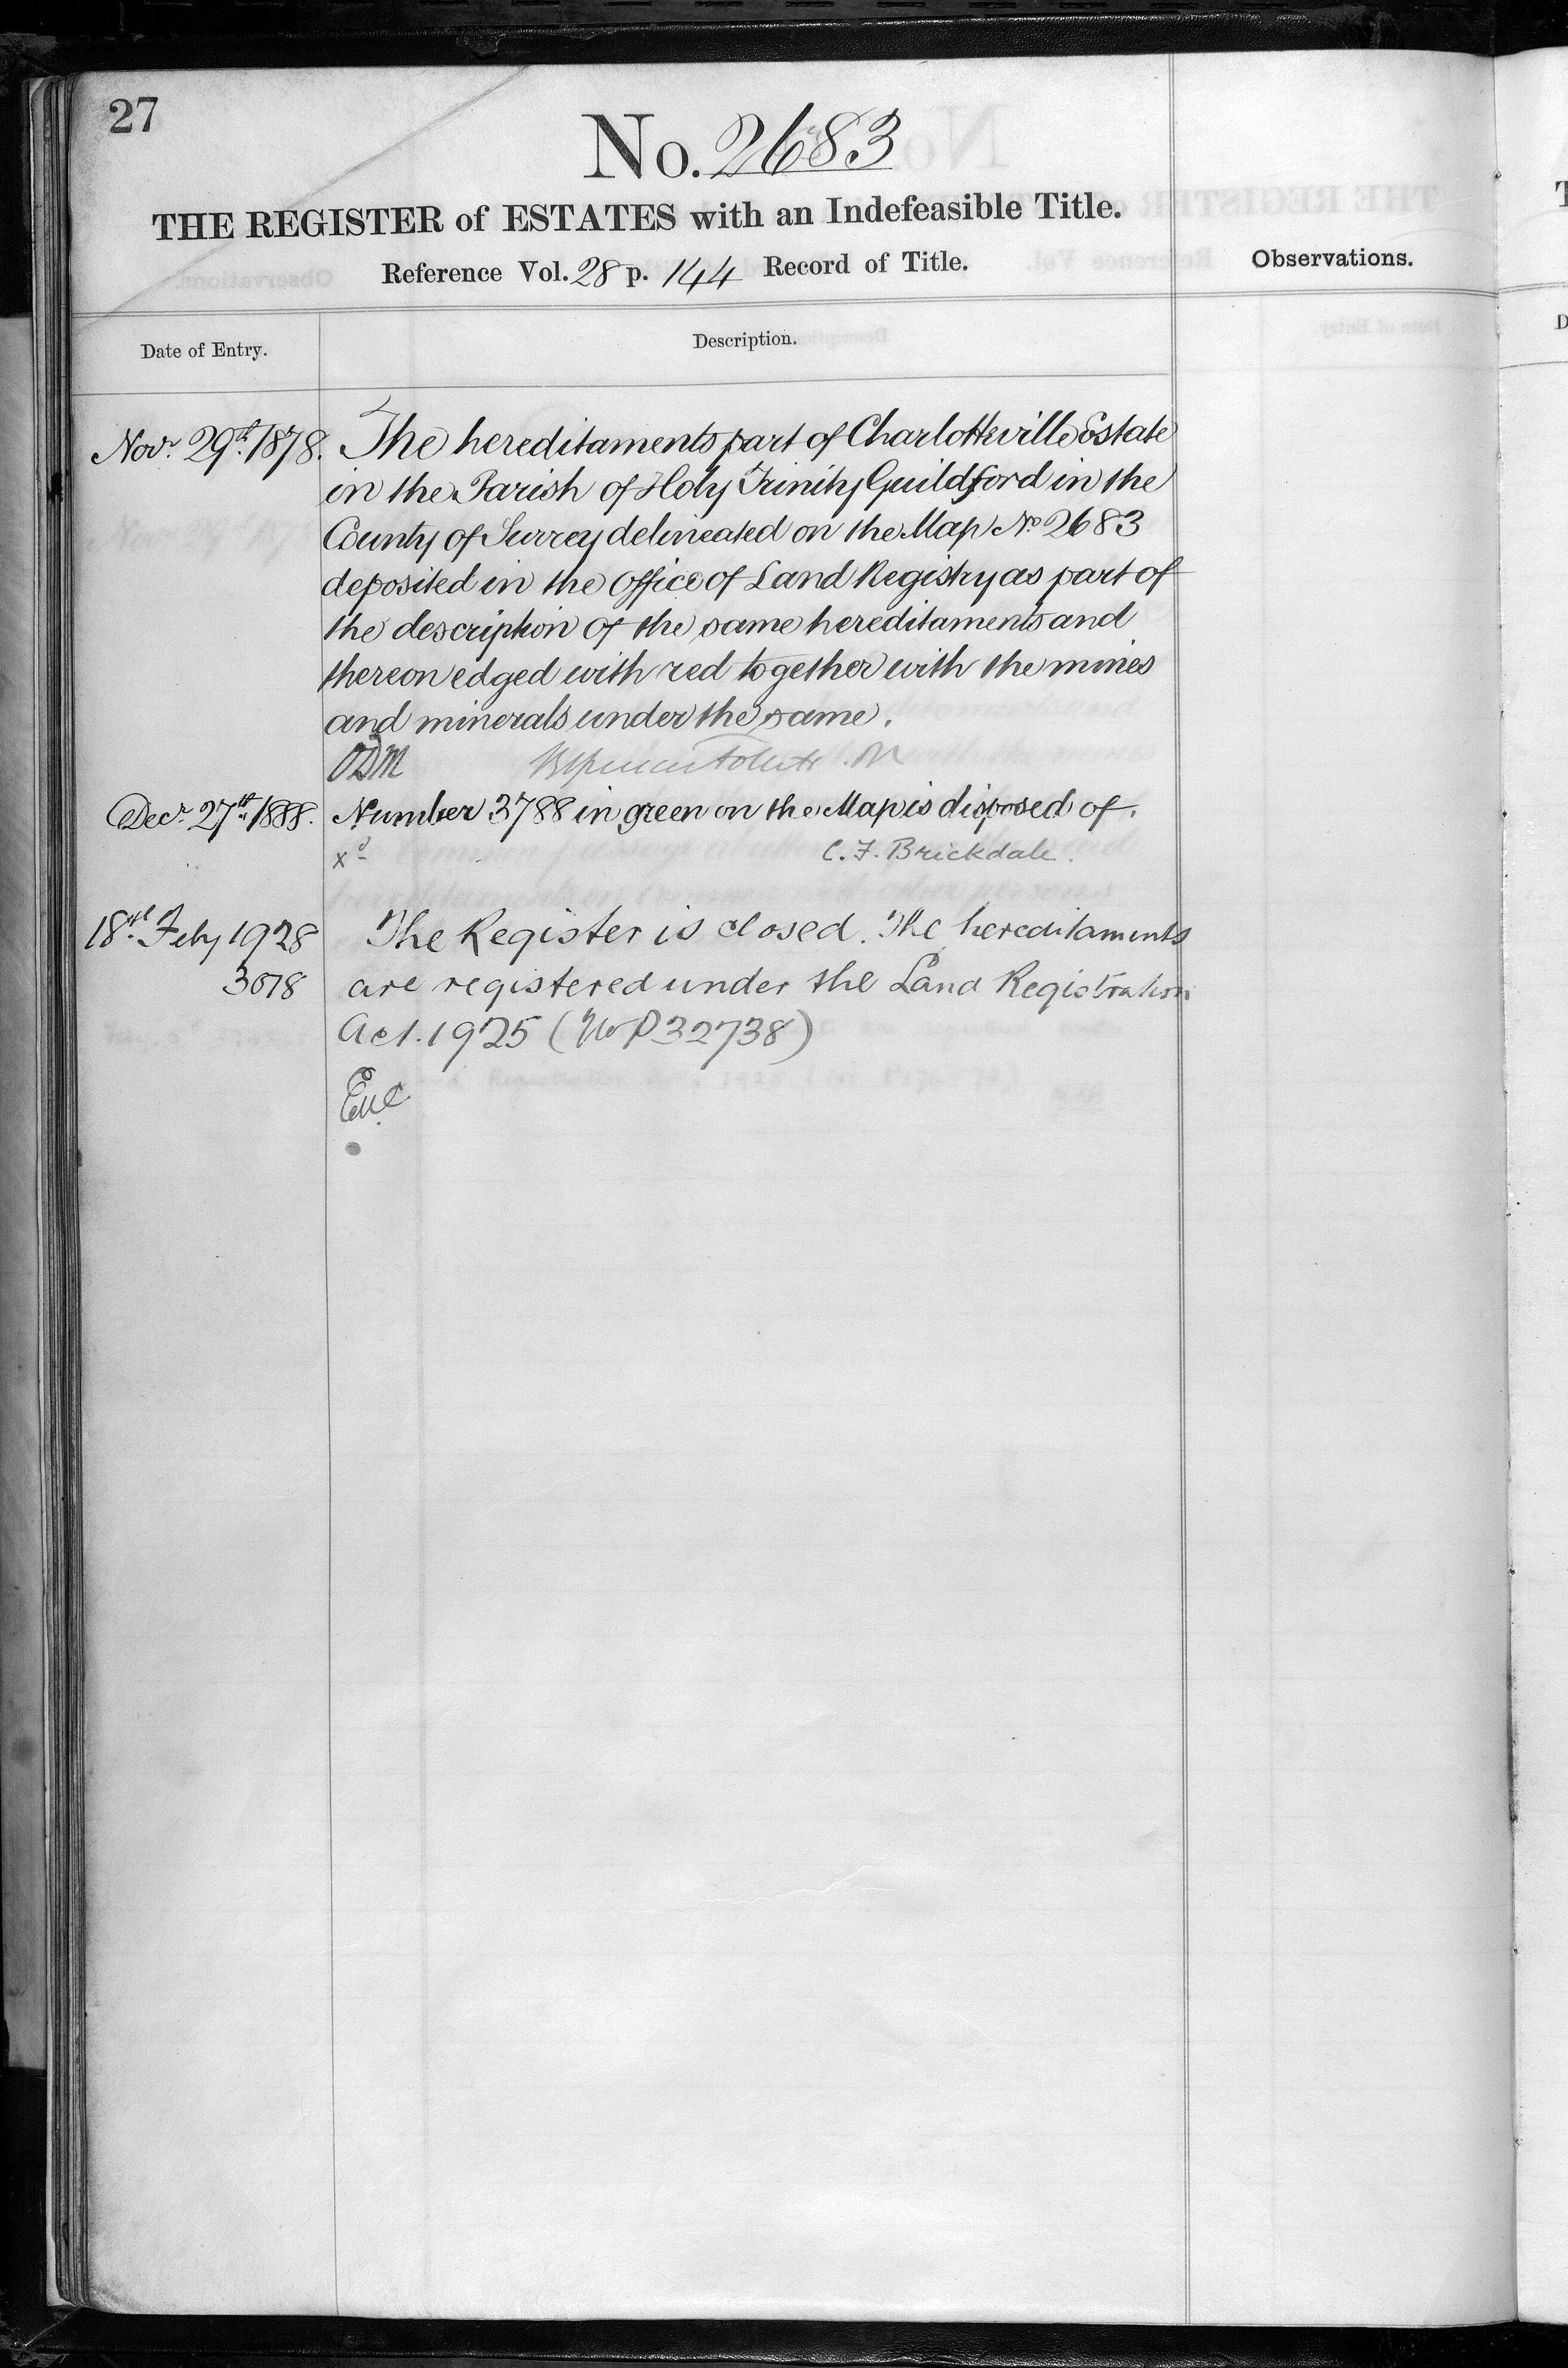 27
No. 2683
THE REGISTER of ESTATES with an Indefeasible Title.
Reference Vol. 28 p. 144 Record of Title.
Observations.
Date of Entry.
Description.
Novr. 29th. 1878. The hereditaments part of Charlotteville Estate
in the Parish of Holy Trinity Guildford in the
County of Surrey delineated on the Map No 2683
deposited in the Office of Land Registry as part of
the description of the same hereditaments and
thereon edged with red together with the mines
and minerals under the same.
ODM
Decr. 27th. 1888. Number 3788 in green on the Map is disposed of.
xd C. F. Brickdale.
18th. Feby 1928 The Register is closed. The hereditaments
3078 are registered under the Land Registration
Act. 1925 (No P32738)